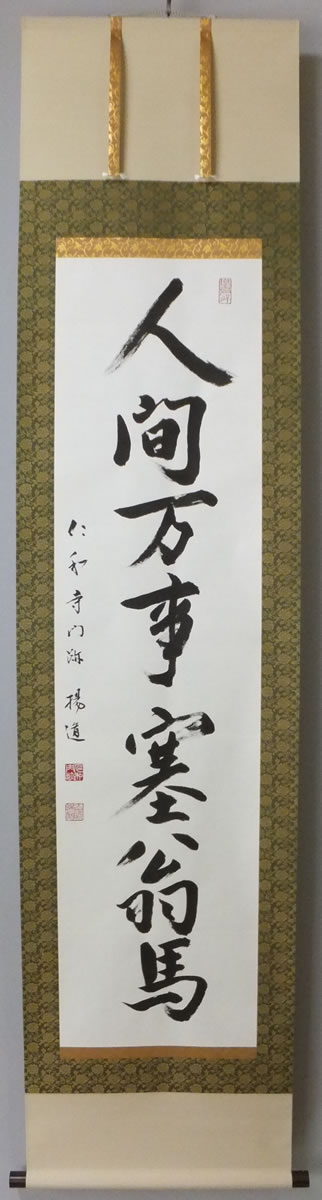 人間万事塞翁馬
仁和寺門跡 揚道